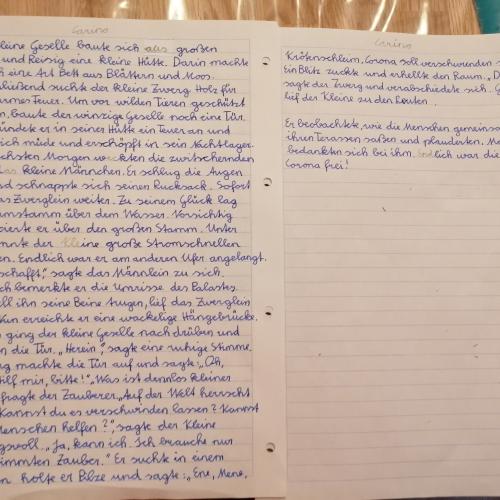 Carino
kleine Geselle baute sich aus großen
und Reisig eine kleine Hütte. Darin machte
eine Art Bett aus Blättern und Moos.
suchte der kleine Zwerg Holz für
Feuer. Um vor wilden Tieren geschützt
baute der winzige Geselle noch eine Tür.
er in seiner Hütte ein Feuer an und
sich müde und erschöpft in sein Nachtlager.
Morgen weckten die zwitschernden
kleine Männchen. Er schlug die Augen
und schnappte sich seinen Rucksack. Sofort
das Zwerglein weiter. Zu seinem Glück lag
über dem Wasser. Vorsichtig
er über den großen Stamm. Unter
der kleine große Stromschnellen
Endlich war er am anderen Ufer angelangt.
sagte das Männlein zu sich.
bemerkte er die Umrisse des Palastes.
ihn seine Beine trugen, lief das Zwerglein
Nun erreichte er eine wackelige Hängebrücke.
ging der kleine Geselle nach drüben und
an die Tür. „Herein", sagte eine ruhige Stimme.
machte die Tür auf und sagte: „Oh,
hilf mir, bitte!" „Was ist denn los kleiner
fragte der Zauberer. „Auf der Welt herrscht
Kannst du es verschwinden lassen? Kannst
Menschen helfen?", sagte der Kleine
„Ja, kann ich. Ich brauche nur
bestimmten Zauber." Er suchte in einem
holte er Pilze und sagte: „Ene, Mene,
Carino
Krötenschleim, Corona soll verschwunden
Ein Blitz zuckte und erhellte den Raum.
sagte der Zwerg und verabschiedete sich.
lief der Kleine zu den Leuten.
Er beobachtete, wie die Menschen gemeinsam
ihren Terassen saßen und plauderten.
bedankten sich bei ihm. Endlich war die
Corona frei!